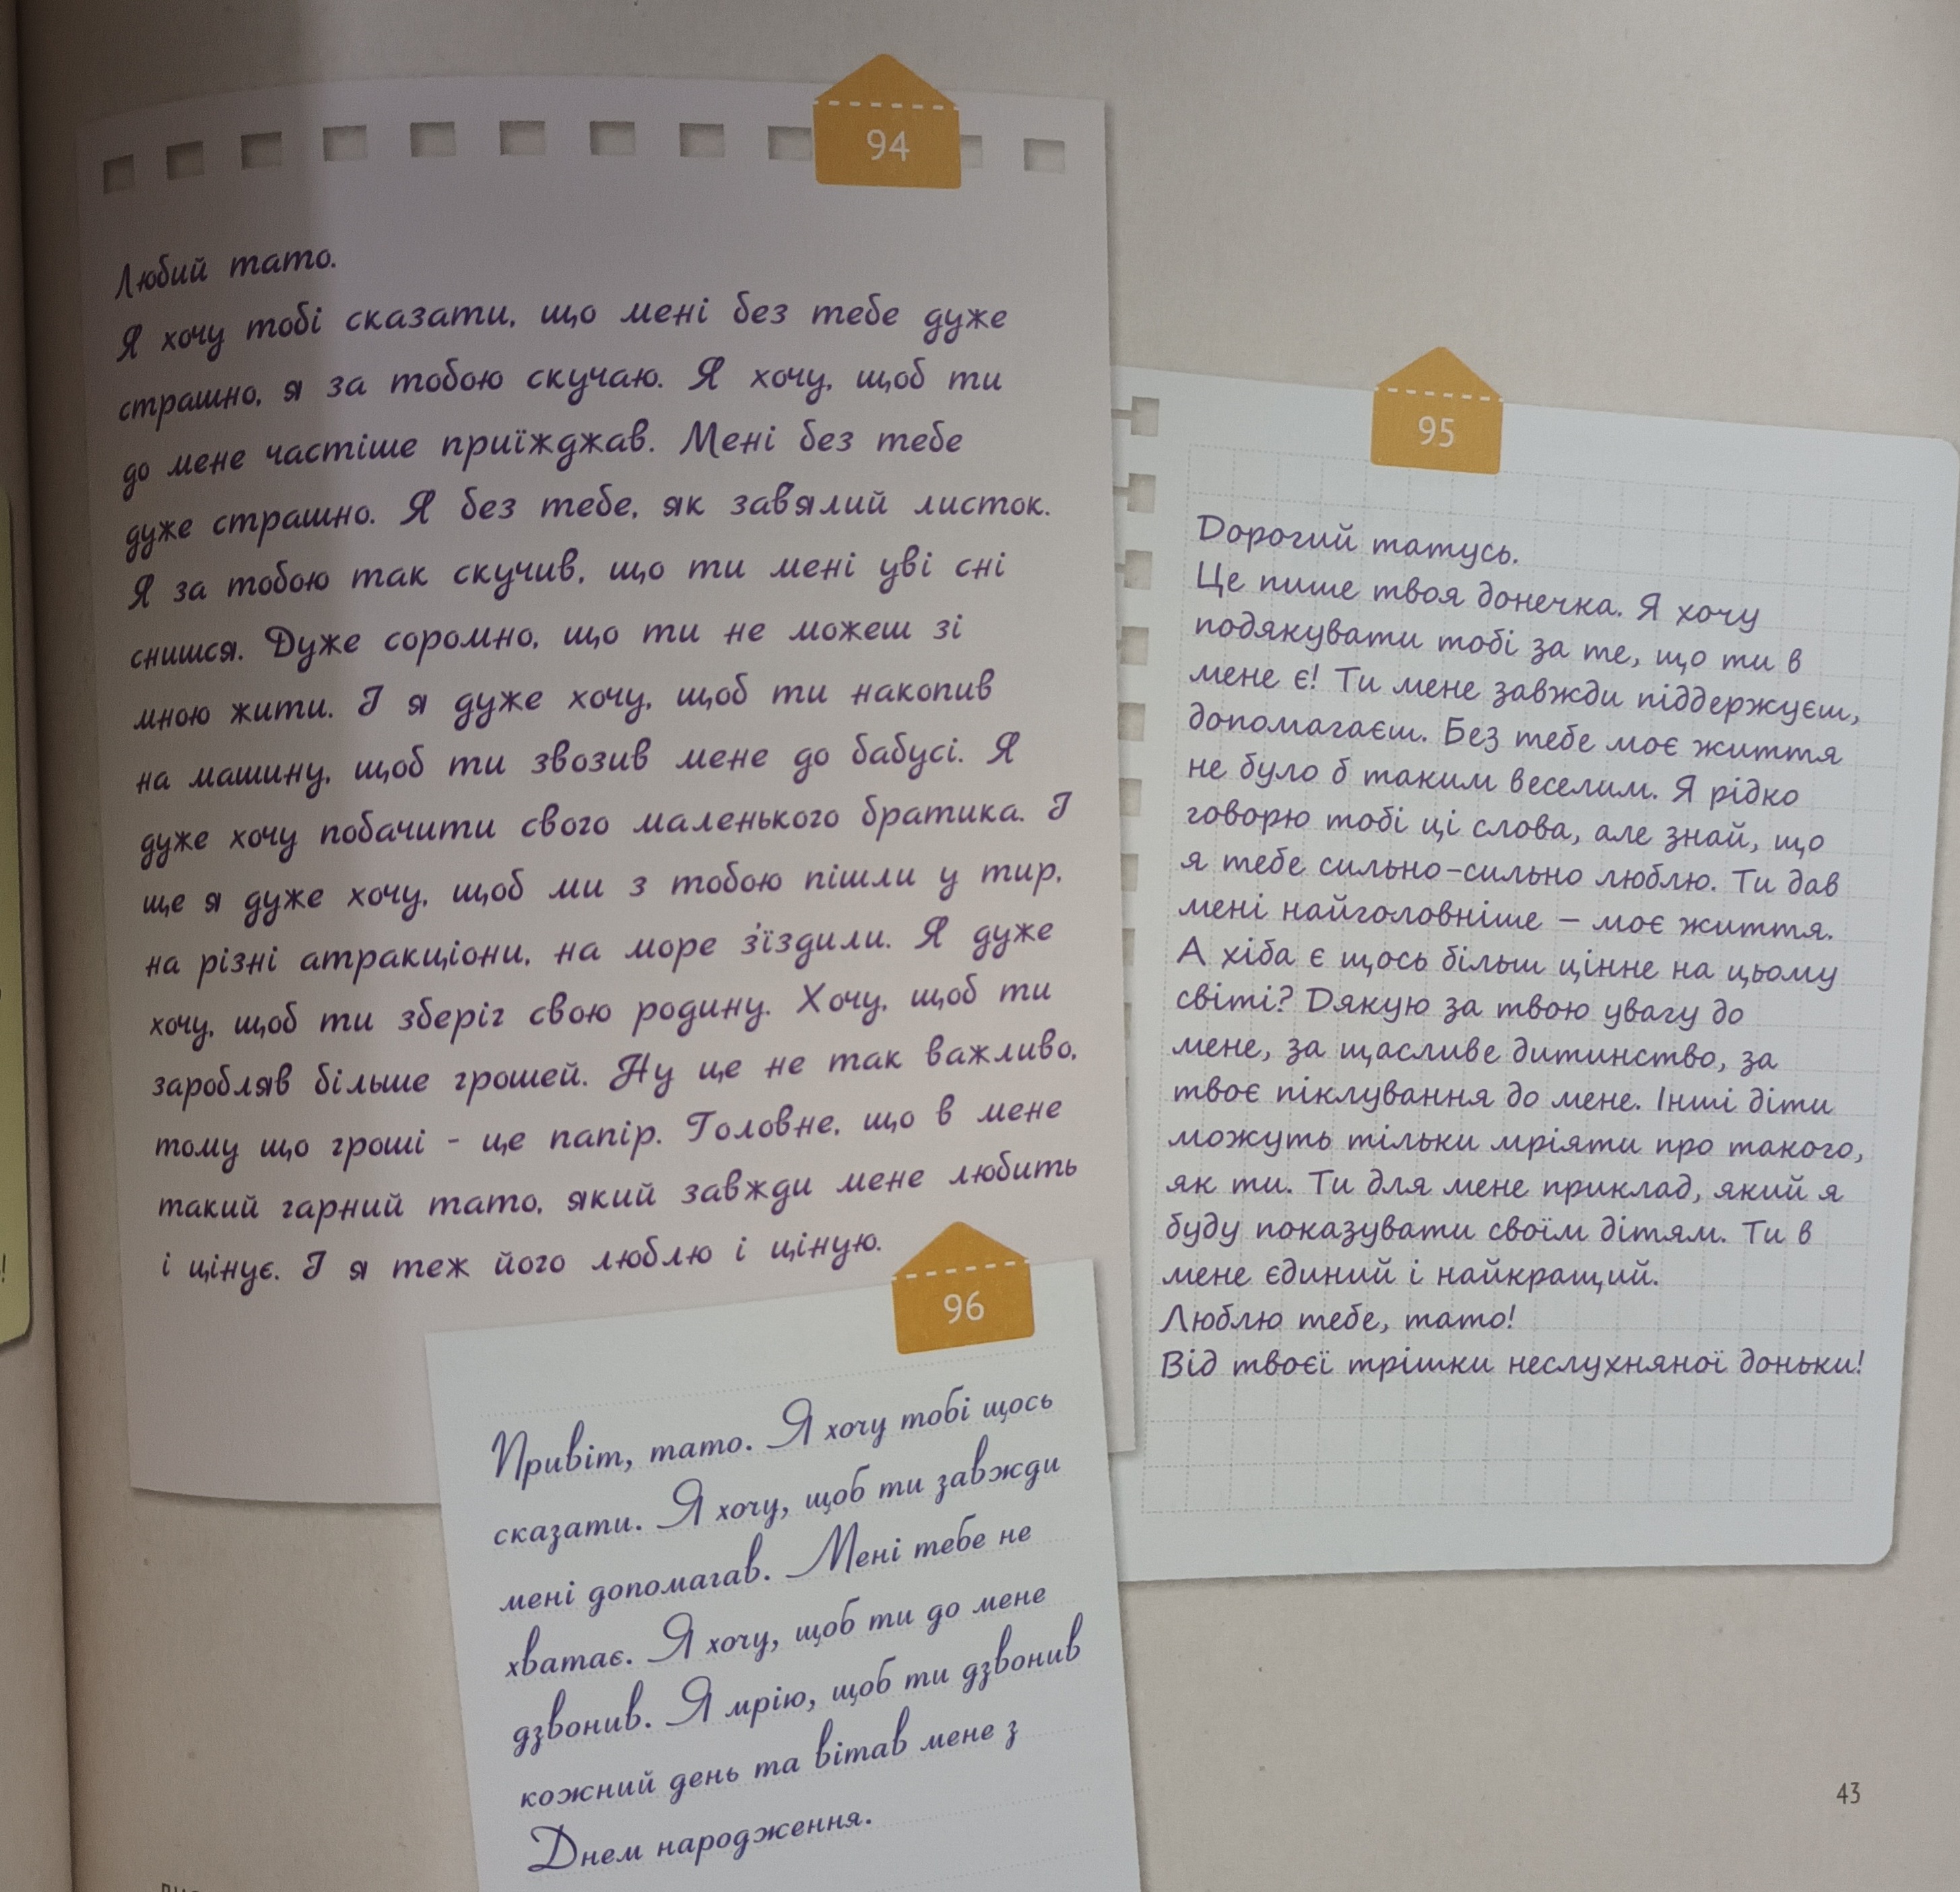 94
Любий тато.
Я хочу тобі сказати, що мені без тебе дуже
страшно, я за тобою скучаю. Я хочу, щоб ти
до мене частіше приїжджав. Мені без тебе
дуже страшно. Я без тебе, як зав'ялий листок.
Я за тобою так скучив, що ти мені уві сні
снишся. Дуже соромно, що ти не можеш зі
мною жити. І я дуже хочу, щоб ти накопив
на машину, щоб ти звозив мене до бабусі. Я
дуже хочу побачити свого маленького братика. І
ще я дуже хочу, щоб ми з тобою пішли у тир,
на різні атракціони, на море з'їздили. Я дуже
хочу, щоб ти зберіг свою родину. Хочу, щоб ти
заробляв більше грошей. Ну це не так важливо,
тому що гроші - це папір. Головне, що в мене
такий гарний тато, який завжди мене любить
і цінує. І я теж його люблю і ціную.
95
Дорогий татусь.
Це пише твоя донечка. Я хочу
подякувати тобі за те, що ти в
мене є! Ти мене завжди піддержуєш,
допомагаєш. Без тебе моє життя
не було б таким веселим. Я рідко
говорю тобі ці слова, але знай, що
я тебе сильно-сильно люблю. Ти дав
мені найголовніше – моє життя.
А хіба є щось більш цінне на цьому
світі? Дякую за твою увагу до
мене, за щасливе дитинство, за
твоє піклування до мене. Інші діти
можуть тільки мріяти про такого,
як ти. Ти для мене приклад, який я
буду показувати своїм дітям. Ти в
мене єдиний і найкращий.
Люблю тебе, тато!
Від твоєї трішки неслухняної доньки!
96
Привіт, тато. Я хочу тобі щось
сказати. Я хочу, щоб ти завжди
мені допомагав. Мені тебе не
хватає. Я хочу, щоб ти до мене
дзвонив. Я мрію, щоб ти дзвонив
кожний день та вітав мене з
Днем народження.
43